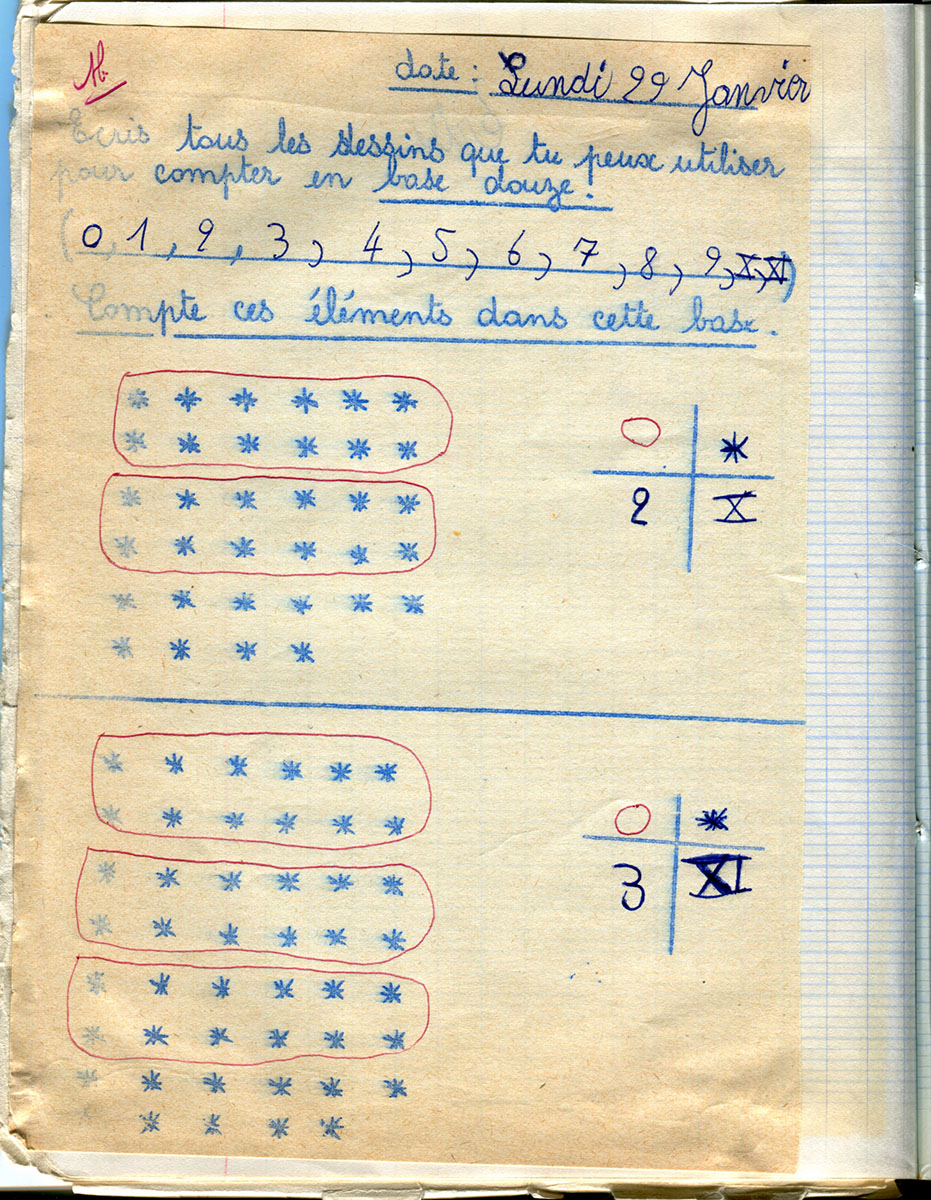 date : Lundi 29 Janvier
Ecris tous les dessins que tu peux utiliser
pour compter en base douze.
(0, 1, 2, 3, 4, 5, 6, 7, 8, 9, X, XI)
Compte ces éléments dans cette base.
2 X
3 XI